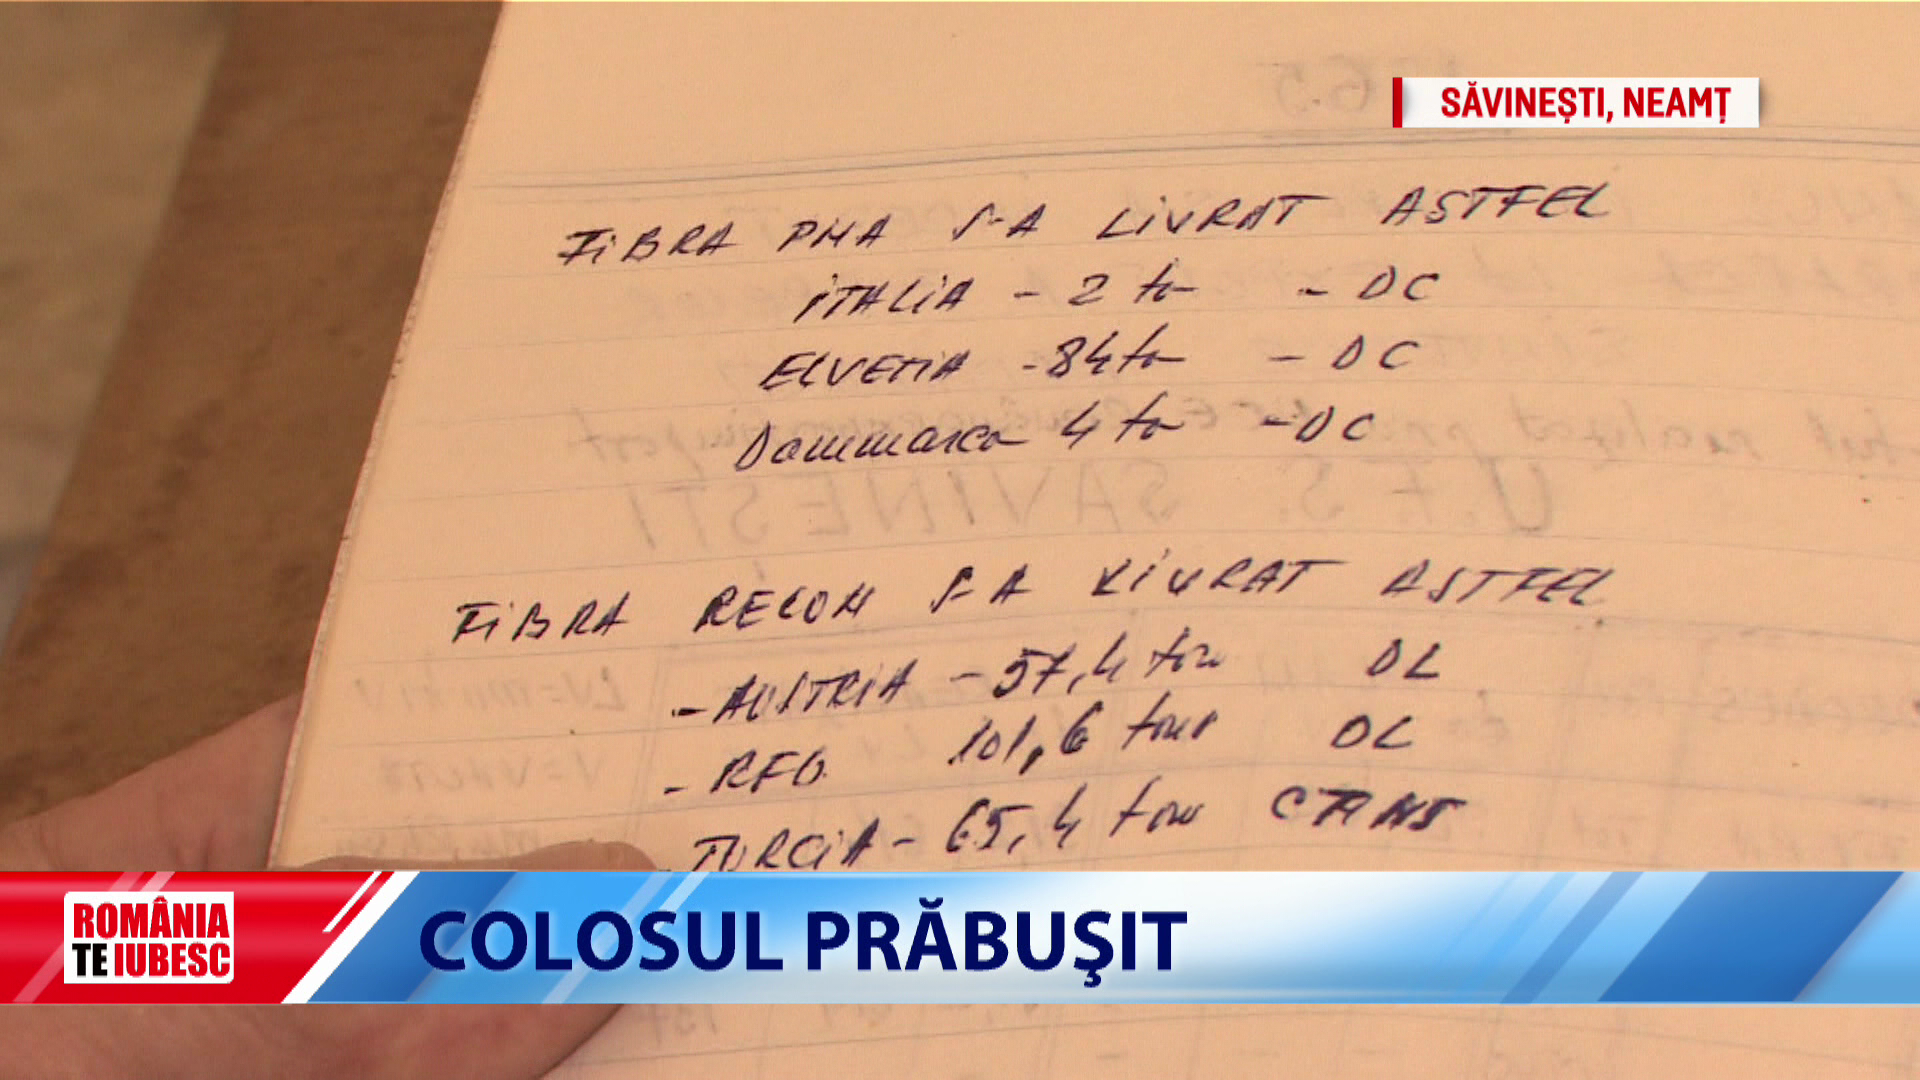 SĂVINEȘTI, NEAMȚ
FIBRA PNA S-A LIVRAT ASTFEL
ITALIA - 2 to - DC
ELVETIA - 84 to - DC
Dammarca 4 to - DC
U.F.S. SAVINESTI
FIBRA RELON S-A LIVRAT ASTFEL
- AUSTRIA - 57,4 tone DL
- RFG 101,6 tone DL
- TURCIA - 65,4 tone
ROMÂNIA
TE IUBESC
COLOSUL PRĂBUŞIT